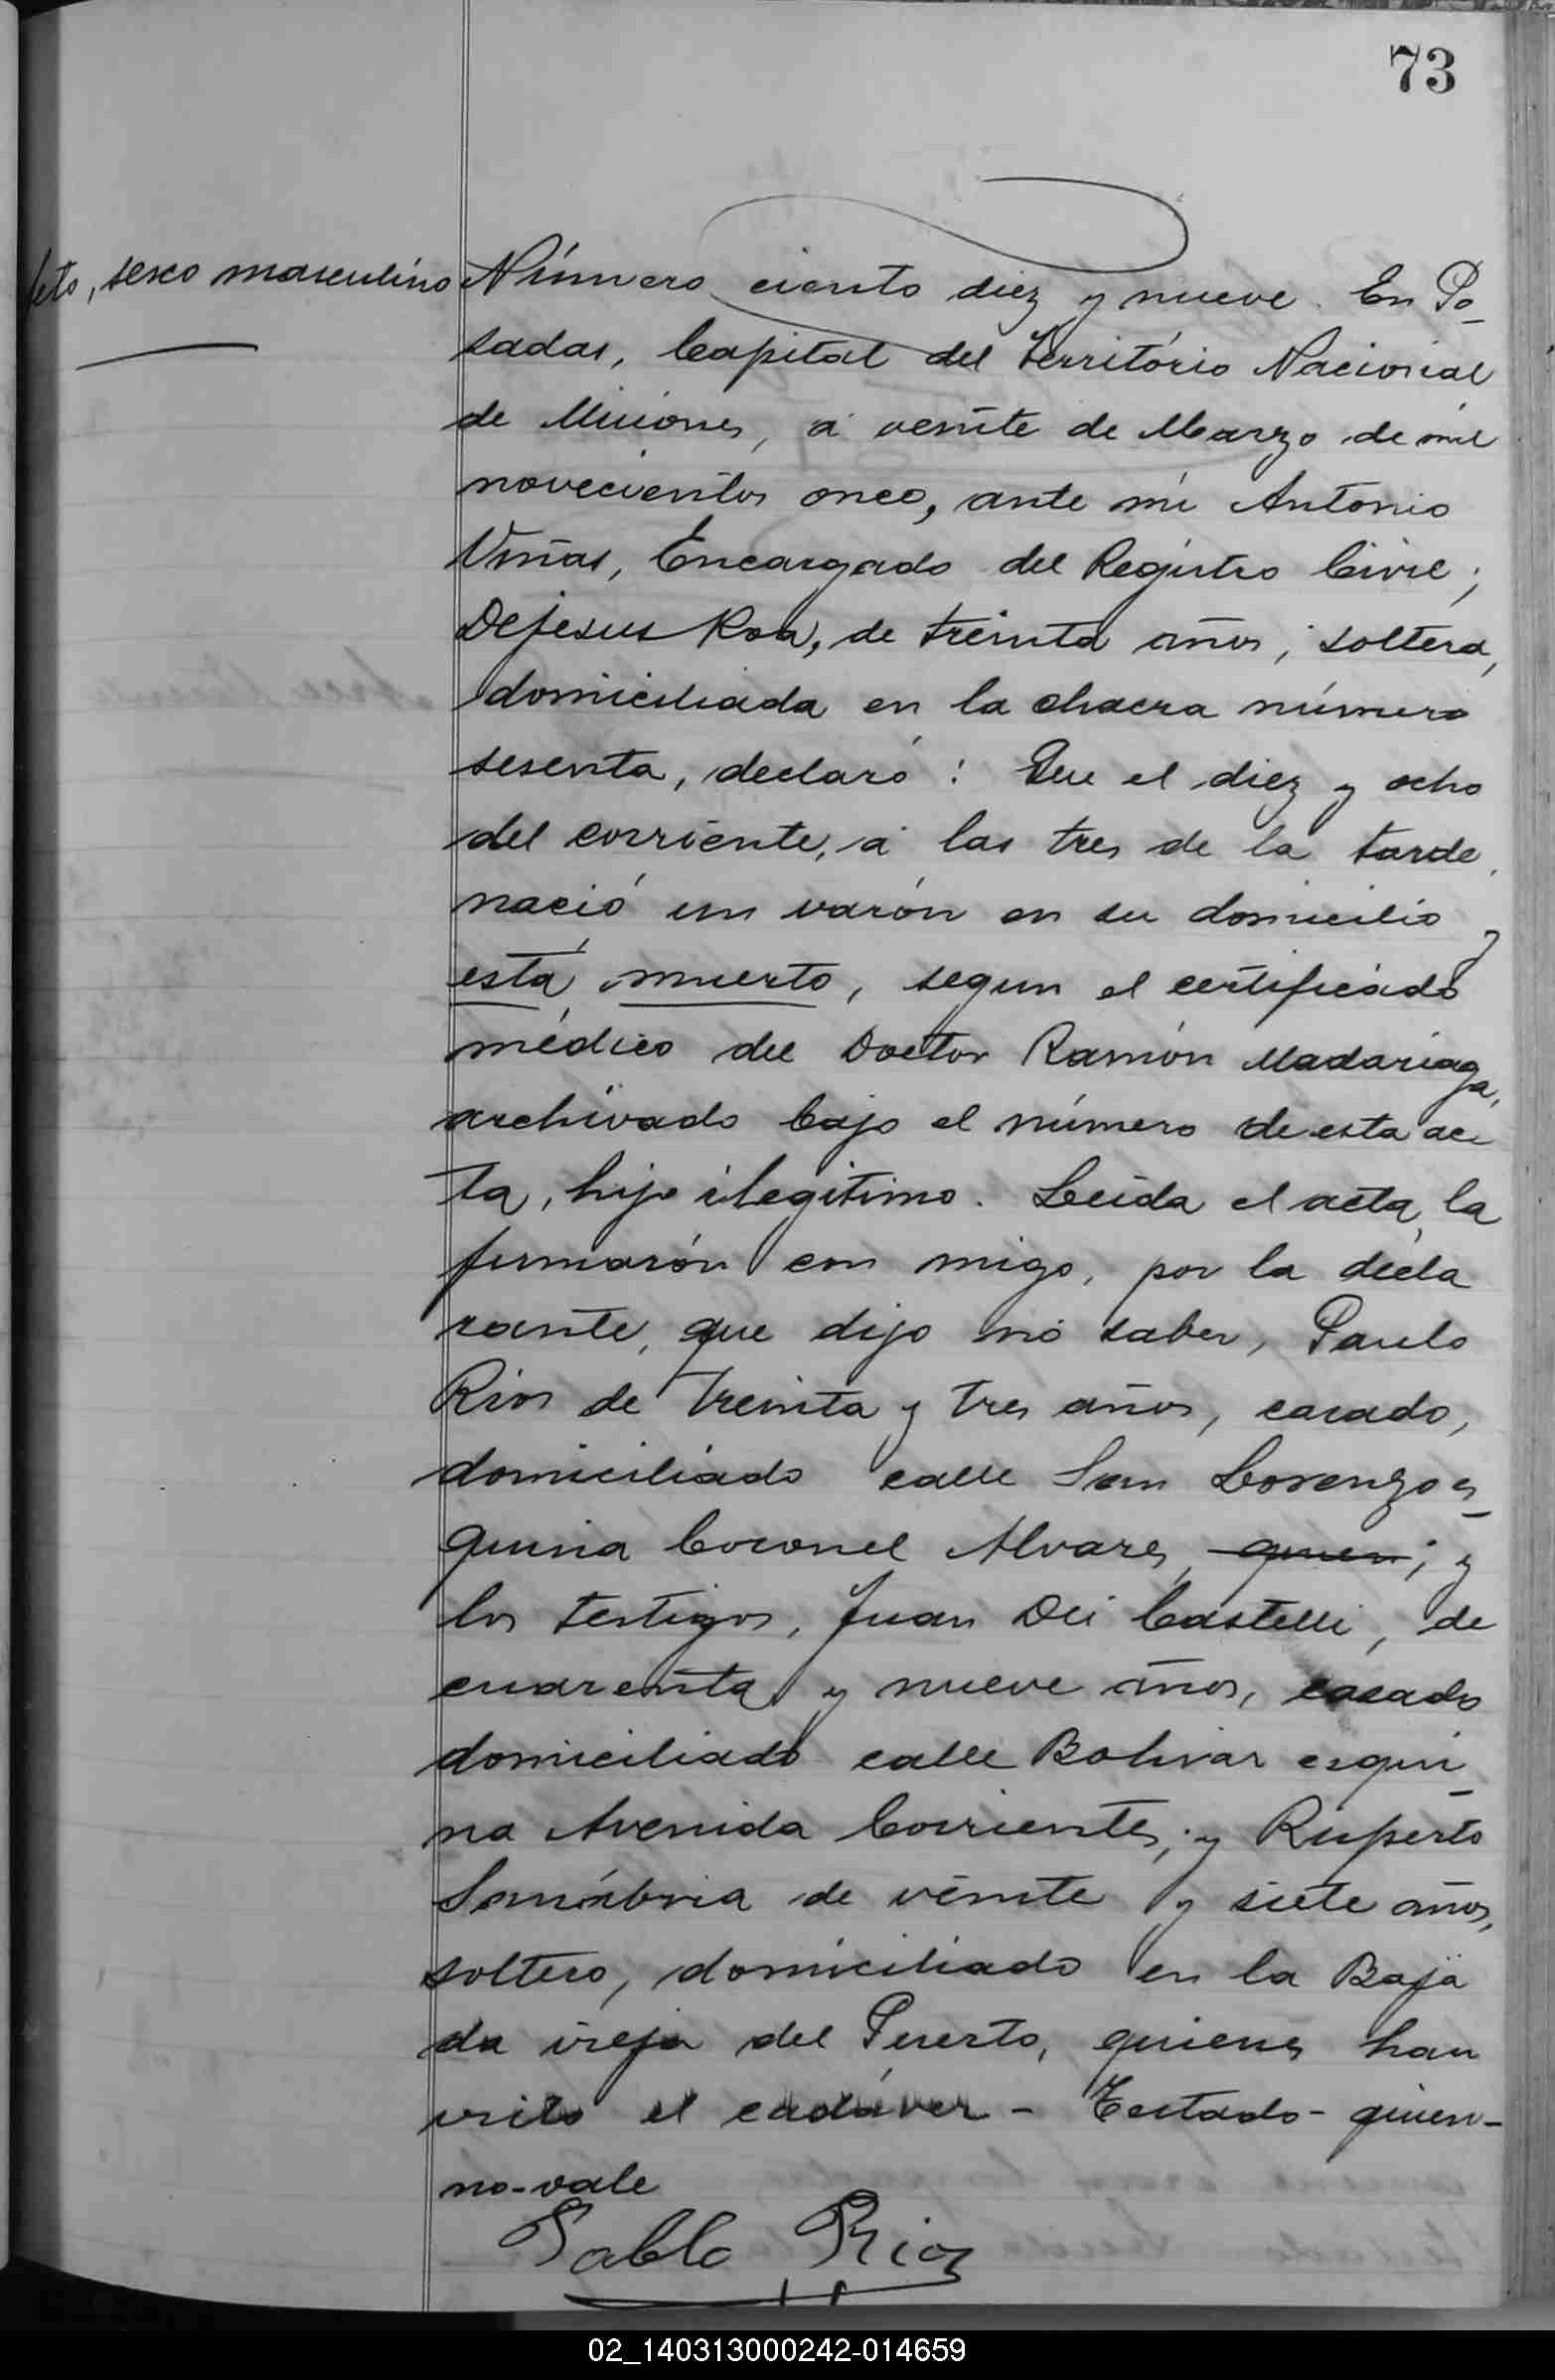 73
feto, sexo masculino
Número ciento diez y nueve. En Po-
sadas, Capital del Território Nacional
de Misiones, á veinte de Marzo de mil
novecientos once, ante mi Antonio
Viñas, Encargado del Registro Civil;
Dejesus Roa, de treinta años, soltera,
domiciliada en la chacra número
sesenta, declaró: Que el diez y ocho
del corriente, á las tres de la tarde,
nació un varón en su domicilio y
está muerto, segun el certificado
médico del Doctor Ramón Madariaga,
archivado bajo el número de esta ac-
ta, hijo ilegitimo. Leida el acta, la
firmarón con migo, por la decla
rante, que dijo no saber, Paulo
Rios de treinta y tres años, casado,
domiciliado calle San Lorenzo es-
quina Coronel Alvarez, quien; y
los testigos, Juan Dei Castelli, de
cuarenta y nueve años, casado
domiciliado calle Bolivar esqui-
na Avenida Corrientes; y Ruperto
Sanábria de veinte y siete años,
soltero, domiciliado en la Baja
da vieja del Puerto, quienes han
visto el cadáver - Testado - quien -
no-vale
Pablo Rios
02_140313000242-014659